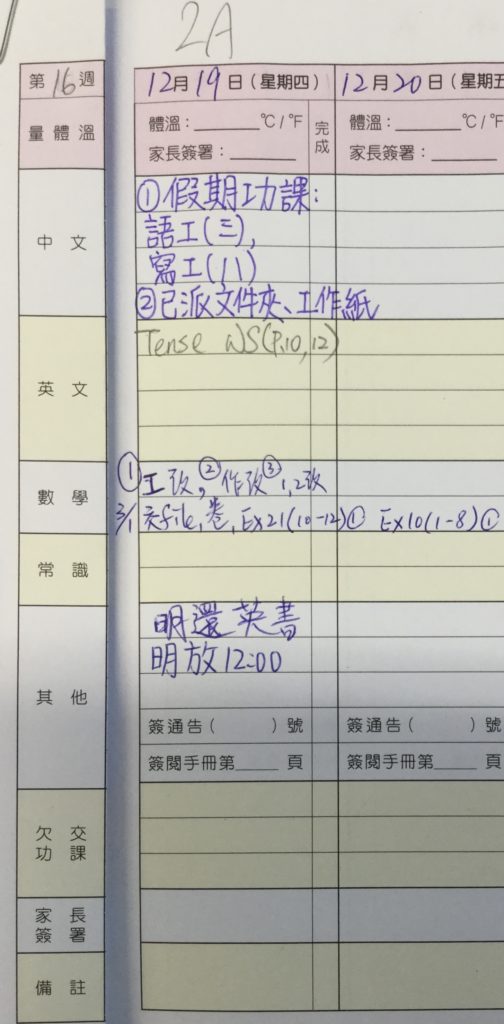 2A
第16週
12月19日(星期四)
12月20日(星期五
量體溫
體溫：______°C/°F
家長簽署：______
完成
體溫：______°C/°F
家長簽署：______
中文
①假期功課：
語工(三),
寫工(八)
②已派文件夾、工作紙
英文
Tense WS(P.10,12)
數學
①工改, ②作改③1,2改
3/1 交file,卷, Ex21(10-12)① Ex10(1-8)①
常識
其他
明還英書
明放12:00
簽通告( )號
簽通告( )號
簽閱手冊第____頁
簽閱手冊第____頁
欠交功課
家長簽署
備註